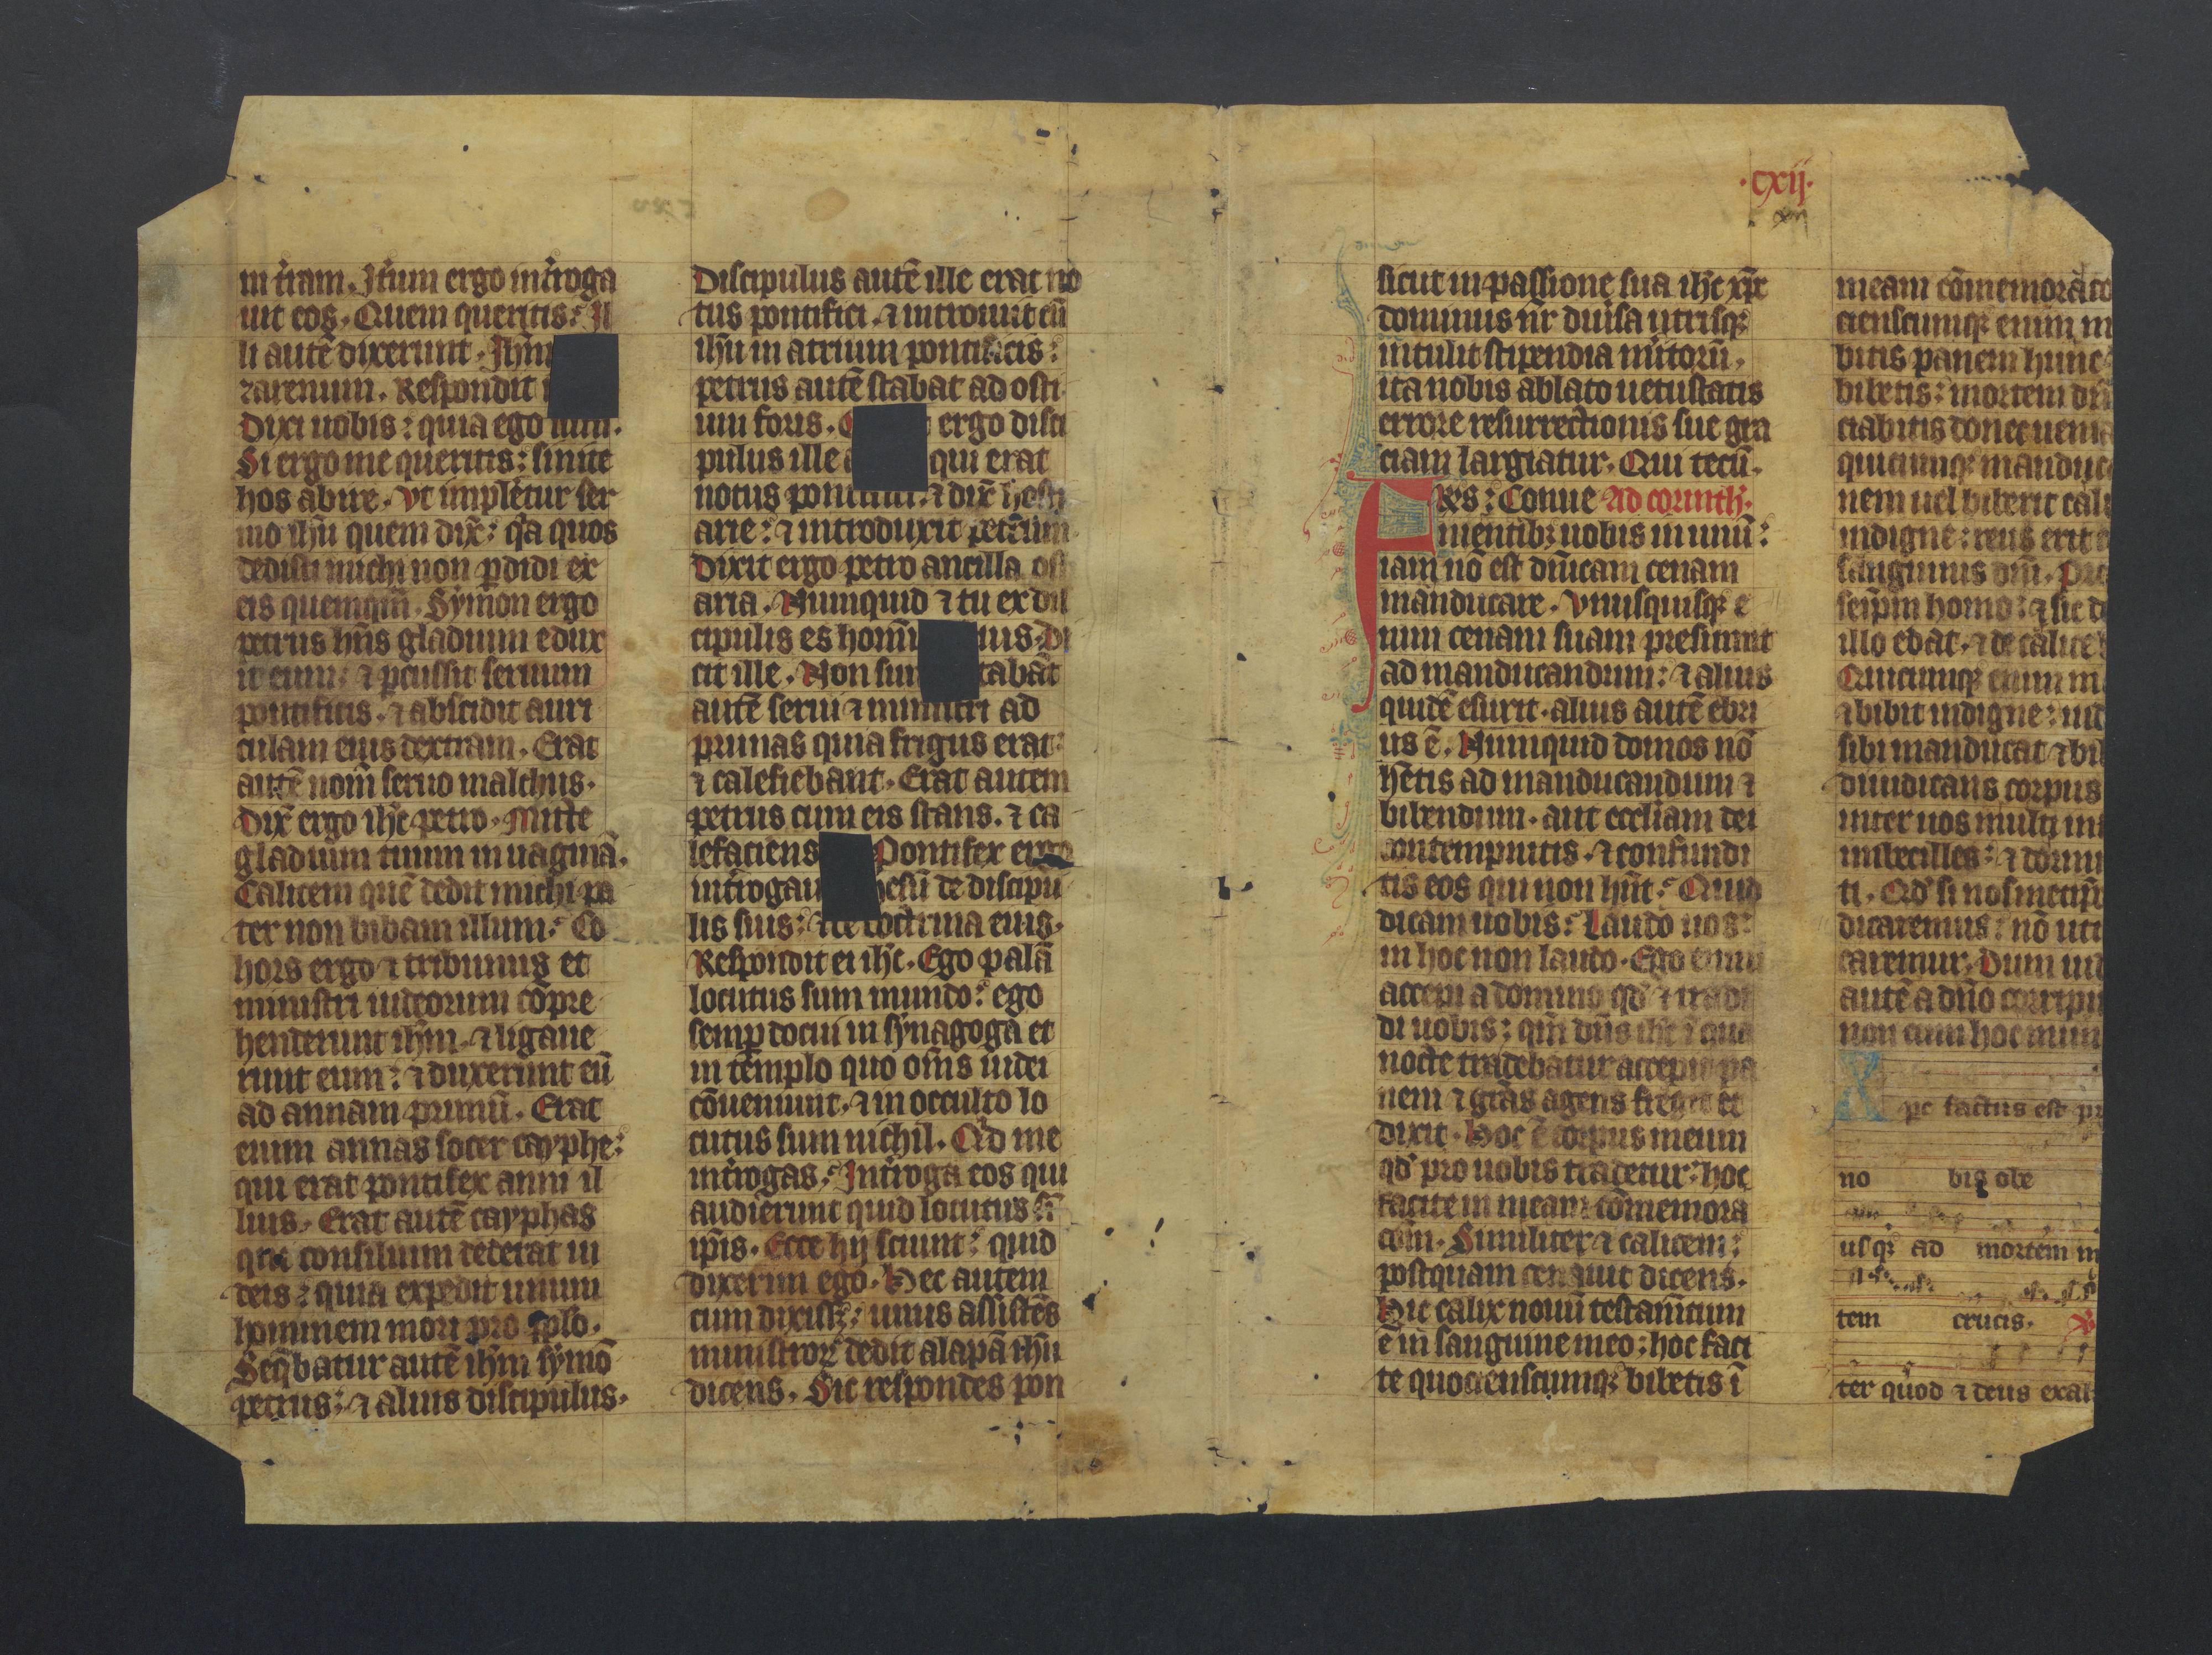 in t̾ram. It̾um ergo int̾roga
uit eos. Quem queritis: Il
li autē dixerunt. Ihm̄
zarenum. Respondit i
Dixi uobis: quia ego sum.
Si ergo me queritis: sinite
hos abire. Vt impletur ser
mo ihū quem dix̄: qa quos
dedisti michi non ꝑdidi ex
eis quemqm̄. Symon ergo
petrus hn̄s gladium edux
it eum: ⁊ ꝑcussit seruum
pontificis. ⁊ abscidit auri
culam eius dextram. Erat
autē nom̄ seruo malchus.
Dix̄ ergo ihc̄ petro. Mitte
gladium tuum in uaginā.
Calicem quē dedit michi pa
ter non bibam illum: Co
hors ergo ⁊ tribunus et
ministri iudeorum cōpre
henderunt ihm̄. ⁊ ligaue
runt eum: ⁊ duxerunt eū
ad annam primū. Erat
enim annas socer cayphe:
qui erat pontifex anni il
lius. Erat autē cayphas
qui consilium dederat iu
deis: quia expedit unum
hominem mori pro pplo.
Seq̄batur autē ihm̄ symō
petrus: ⁊ alius discipulus.
Discipulus autē ille erat no
tus pontifici. ⁊ introiuit cū
ihū in atrium pontificis:
petrus autē stabat ad osti
um foris. ergo disci
pulus ille qui erat
notus pontifici. ⁊ dix̄ hosti
arie: ⁊ introduxit petrum.
Dixit ergo petro ancilla osti
aria. Numquid ⁊ tu ex dis
cipulis es homi ius. Di
cit ille. Non sum tabāt
autē serui ⁊ ministri ad
prunas quia frigus erat:
⁊ calefiebant. Erat autem
petrus cum eis stans. ⁊ ca
lefaciens Pontifex ergo
int̾rogau iesū de discipu
lis suis: ⁊ de doctrina eius.
Respondit ei ihc̄. Ego palā
locutus sum mundo: ego
semꝑ docui in synagoga et
in templo quo om̄s iudei
cōueniunt. ⁊ in occulto lo
cutus sum nichil. Qd me
int̾rogas: Int̾roga eos qui
audierunt quid locutus sū
ip̄is. Ecce hij sciunt: quid
dixerim ego. Hec autem
cum dixisset: unus assistēs
ministroꝝ dedit alapā ihū
dicens. Sic respondes pon
·cxij·
sicut in passione sua ihc̄ xp̄c
dominus nr̄ diuisa utrisqꝫ
intulit stipendia m̄itorū.
ita nobis ablato uetustatis
errore resurrectionis sue gra
ciam largiatur. Qui tecū.
Fr̄es: Conue Ad corinth̄.
nientibꝫ uobis in unū:
iam nō est dn̄icam cenam
manducare. Vnusquisqꝫ e
nim cenam suam presumit
ad manducandum: ⁊ alius
quidē esurit. alius autē ebri
us ē. Numquid domos nō
hētis ad manducandum ⁊
bibendum. aut eccl̄iam dei
contempnitis. ⁊ confundi
tis eos qui non hn̄t: Quid
dicam uobis: Laudo uos:
in hoc non laudo. Ego enim
accepi a domino qd ⁊ tradi
di uobis: qm̄ dn̄s ihc̄ ī qua
nocte tradebatur accepit pa
nem ⁊ grās agens fregit et
dixit. Hoc ē corpus meum
qd pro uobis tradetur: hoc
facite in meam cōmemora
com̄. Similiter ⁊ calicem:
postquam cenauit dicens.
Hic calix nouū testam̄tum
ē in sanguine meo: hoc faci
te quocienscumqꝫ bibetis ī
meam cōmemoraco
cienscumqꝫ enim m
bitis panem hunc
bibetis: mortem dn̄i
ciabitis donec uenia
quicumqꝫ manduc
nem uel biberit cali
indigne: reus erit c
sanguinis dn̄i. Pro
seip̄m homo: ⁊ sic d
illo edat. ⁊ de calice b
Quicumqꝫ enim m
⁊ bibit indigne: iud
sibi manducat ⁊ bib
diiudicans corpus
inter uos multi in
imbecilles: ⁊ dormi
ti. Qd si nosmetip̄
dicaremus: nō uti
caremur. Dum iud
autē a dn̄o corripi
non cum hoc mun
Xpc factus est pr
no bis obe
usqꝫ ad mortem m
tem crucis. V
ter quod ⁊ deus exal